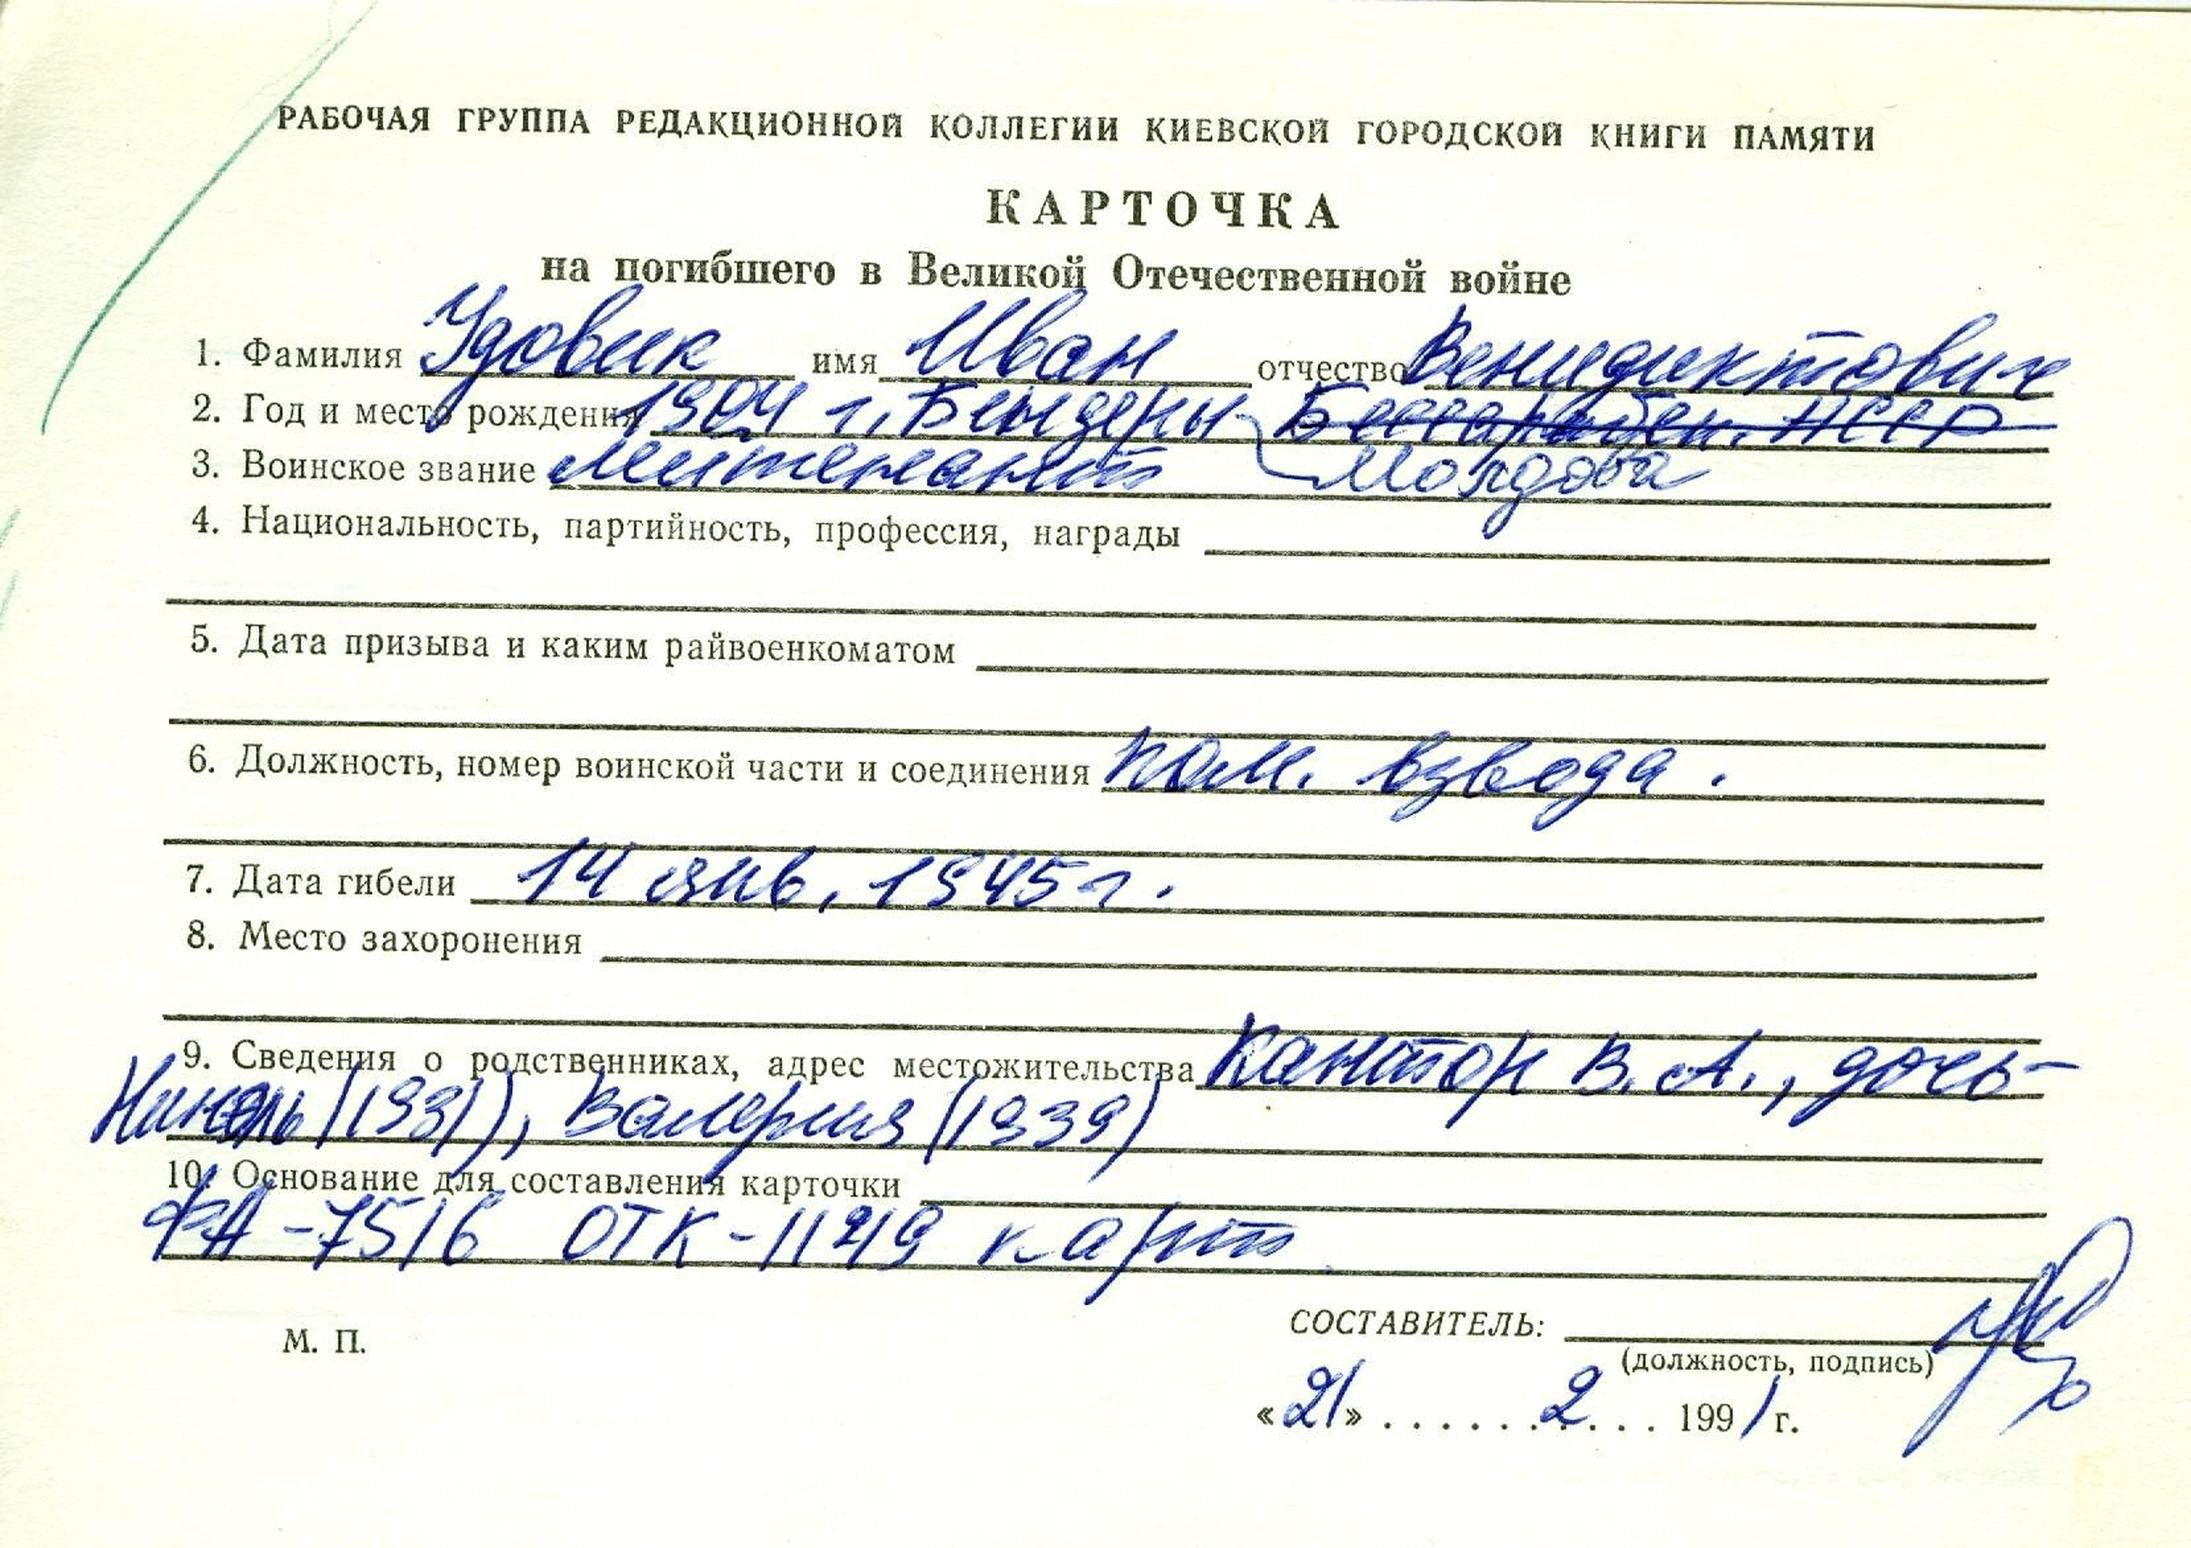 РАБОЧАЯ ГРУППА РЕДАКЦИОННОЙ КОЛЛЕГИИ КИЕВСКОЙ ГОРОДСКОЙ КНИГИ ПАМЯТИ
КАРТОЧКА
на погибшего в Великой Отечественной войне
1. Фамилия Удовик имя Иван отчество Венидиктович
2. Год и место рождения 1904 г. Бендеры Бессарабск. НССР
3. Воинское звание лейтенант Молдова
4. Национальность, партийность, профессия, награды
5. Дата призыва и каким райвоенкоматом
6. Должность, номер воинской части и соединения ком. взвода.
7. Дата гибели 14 янв. 1945 г.
8. Место захоронения
9. Сведения о родственниках, адрес местожительства Кантор В. А., дочь-
Нинель (1931), Валерия (1939)
10. Основание для составления карточки
ФА-7516 ОТК-1149 карт
М. П.
СОСТАВИТЕЛЬ:
(должность, подпись)
«21» ...... 2 ... 1991 г.